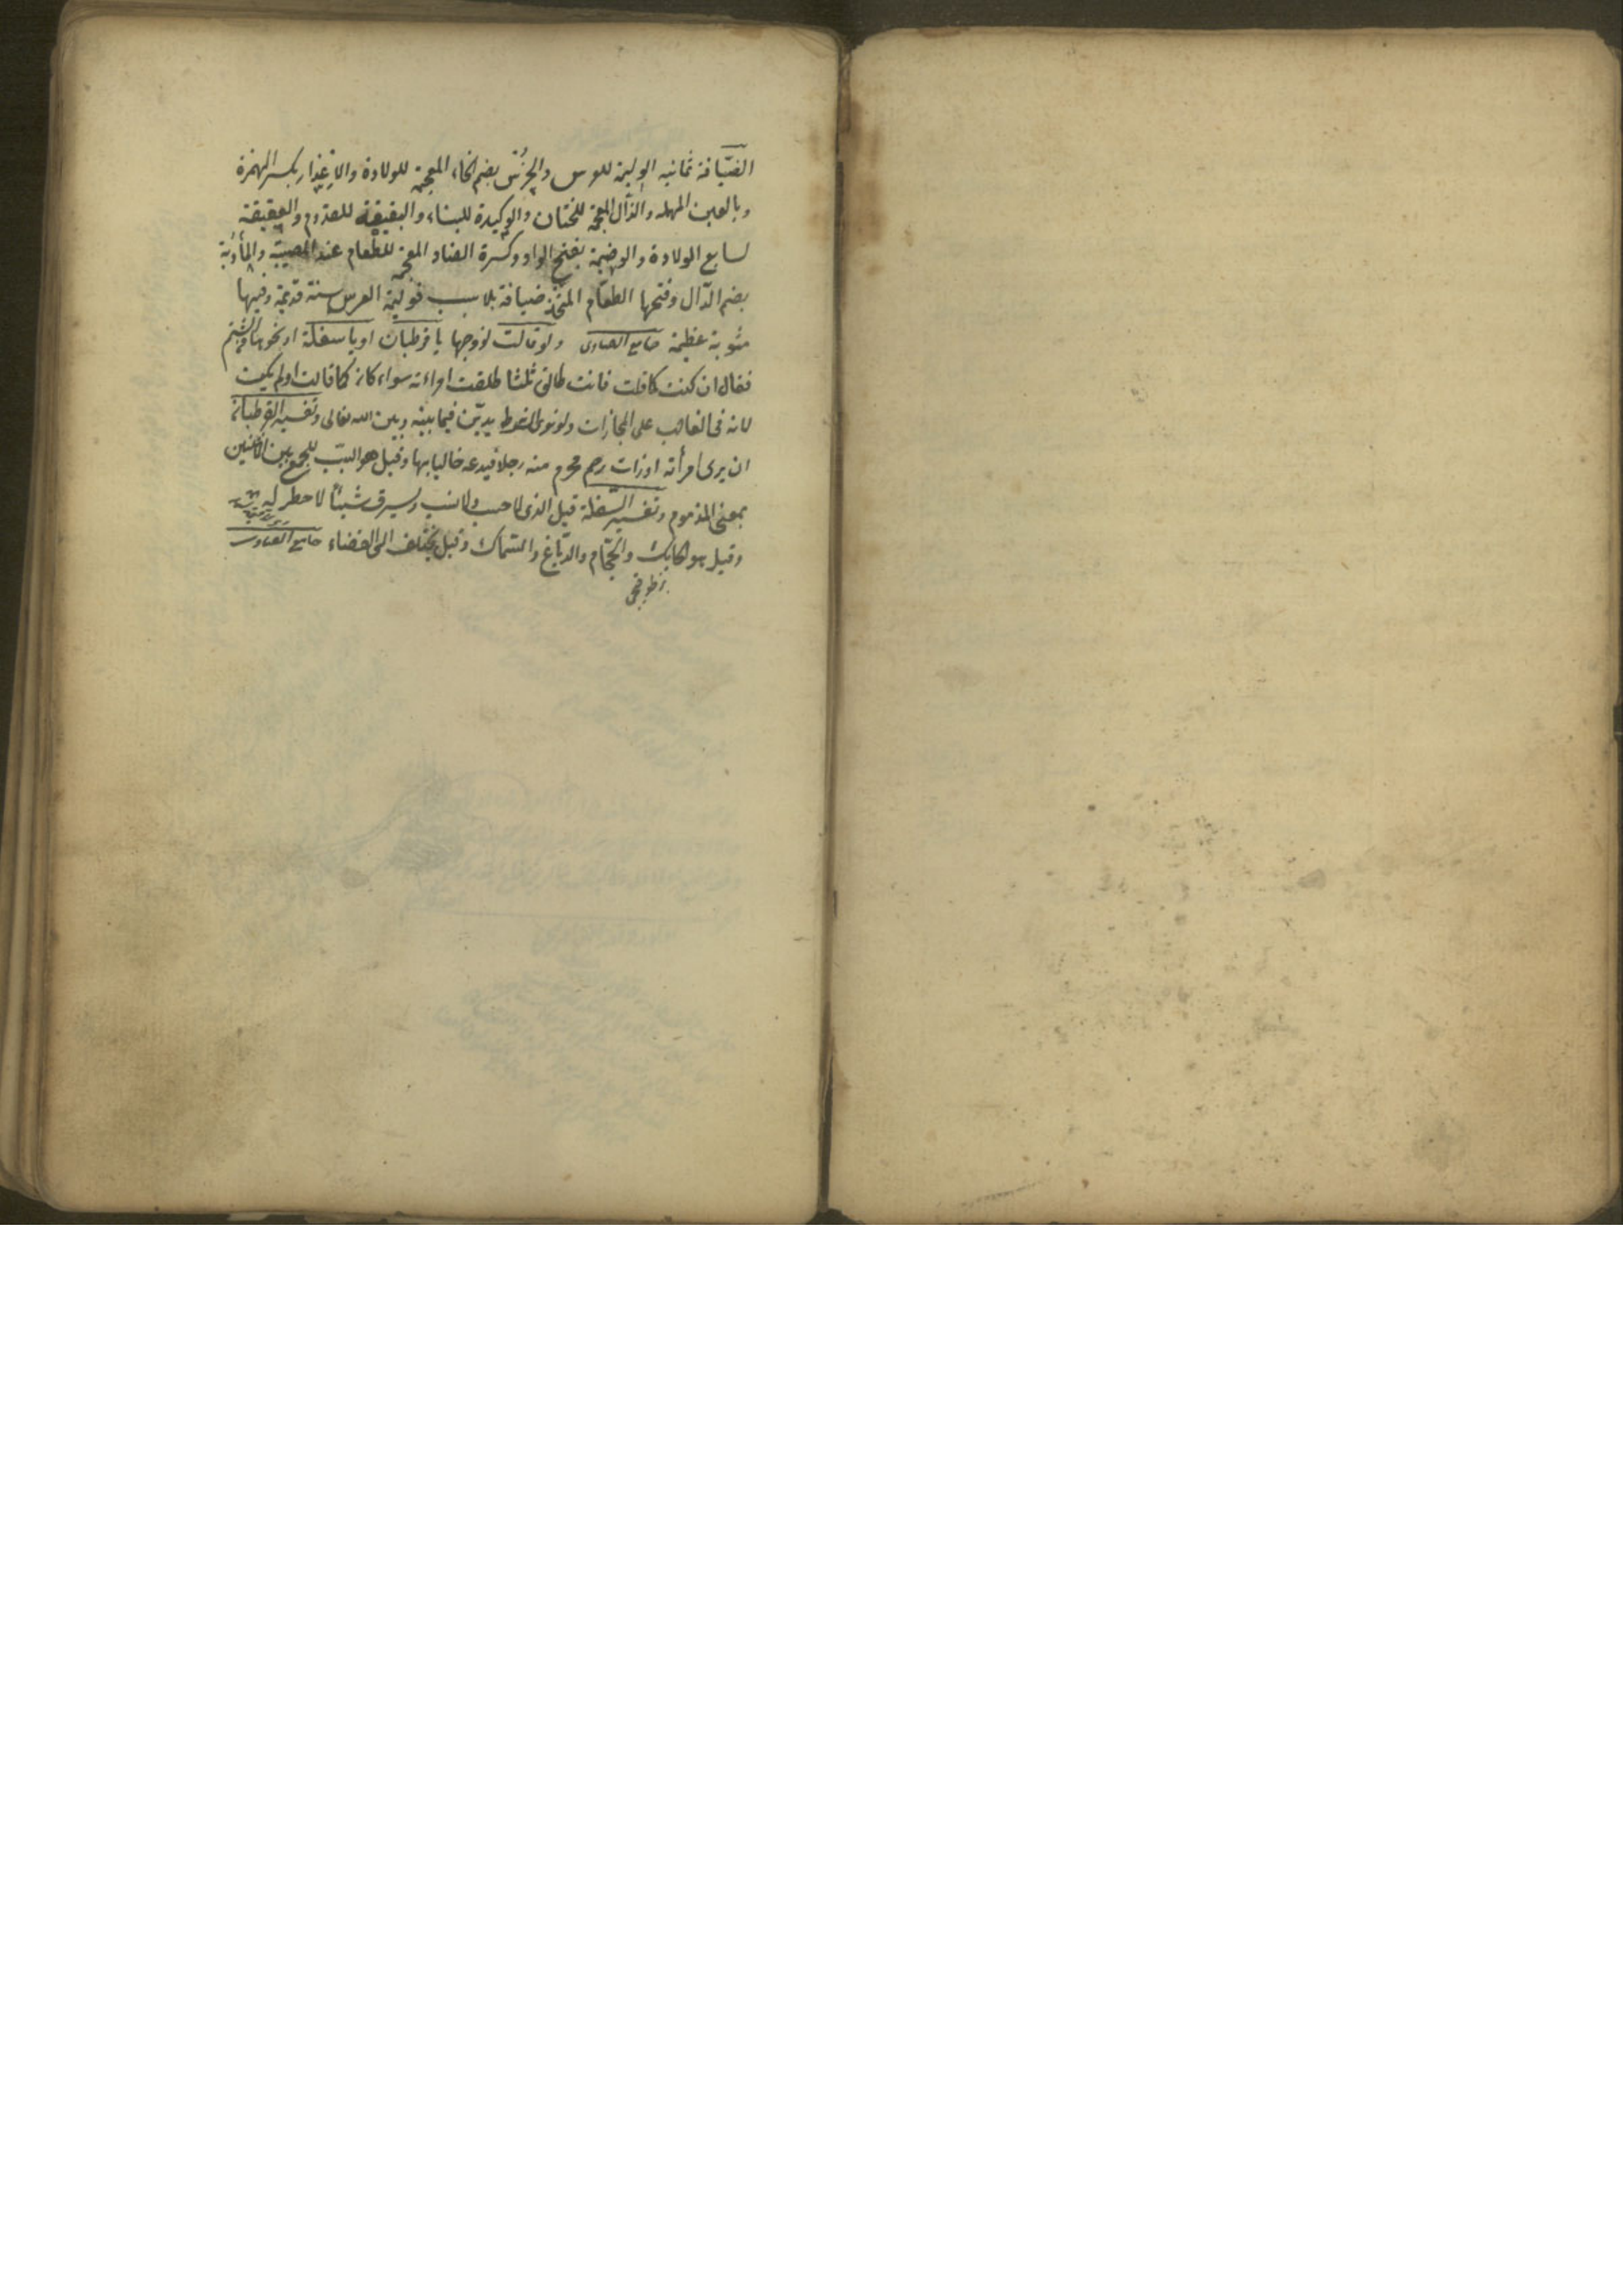 الضيافة ثمانية الوليمة للعرس والخرس بضم الخاء المعجمة للولادة والاعذار بكسر الهمزة
وبالعين المهملة والذال المعجمة للختان والوكيدة للبناء والنقيعة للقدوم والعقيقة
لسابع الولادة والوضيمة بفتح الواو وكسرة الضاد المعجمة للطعام عند المصيبة والمأدبة
بضم الدال وفتحها الطعام المتخذ ضيافة بلا سبب فوليمة العرس سنة قديمة وفيها
مثوبة عظيمة جامع الفتاوى ولو قالت لزوجها يا قرطبان او يا سفلة او نحوهما الشتم
فقال ان كنت كما قلت فانت طالق ثلثا طلقت امراءته سواء كان كما قالت او لم يكن
لانه فى الغالب على المجازات ولو نوى الشرط يدين فيما بينه وبين الله تعالى وتفسير القرطبان
ان يرى امرأته او ذات رحم محرم منه رجلا فيدعه خاليا بها وقيل هو السبب للجمع بين الاثنين
بمعنى المذموم وتفسير السفلة قيل الذى لا حسب ولا نسب ويسرق شيئا لا خطر له
وقيل هو الحايك والحجام والدباغ والسماك وقيل يختلف الى القضاء جامع الفتاوى